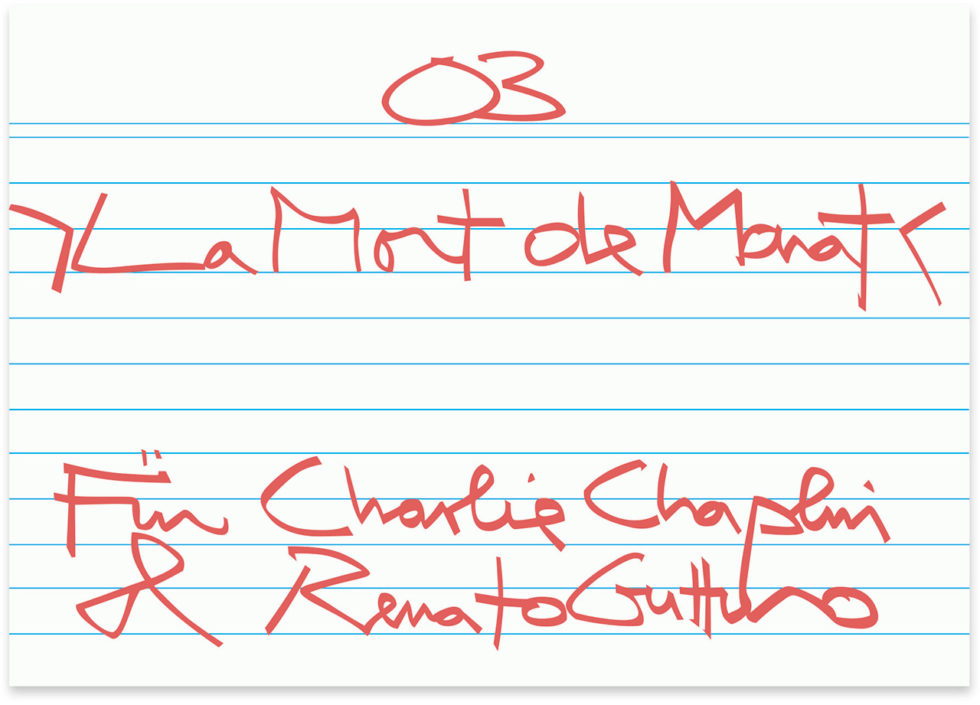 03
>La Mort de Marat<
Für Charlie Chaplin
& Renato Guttuso